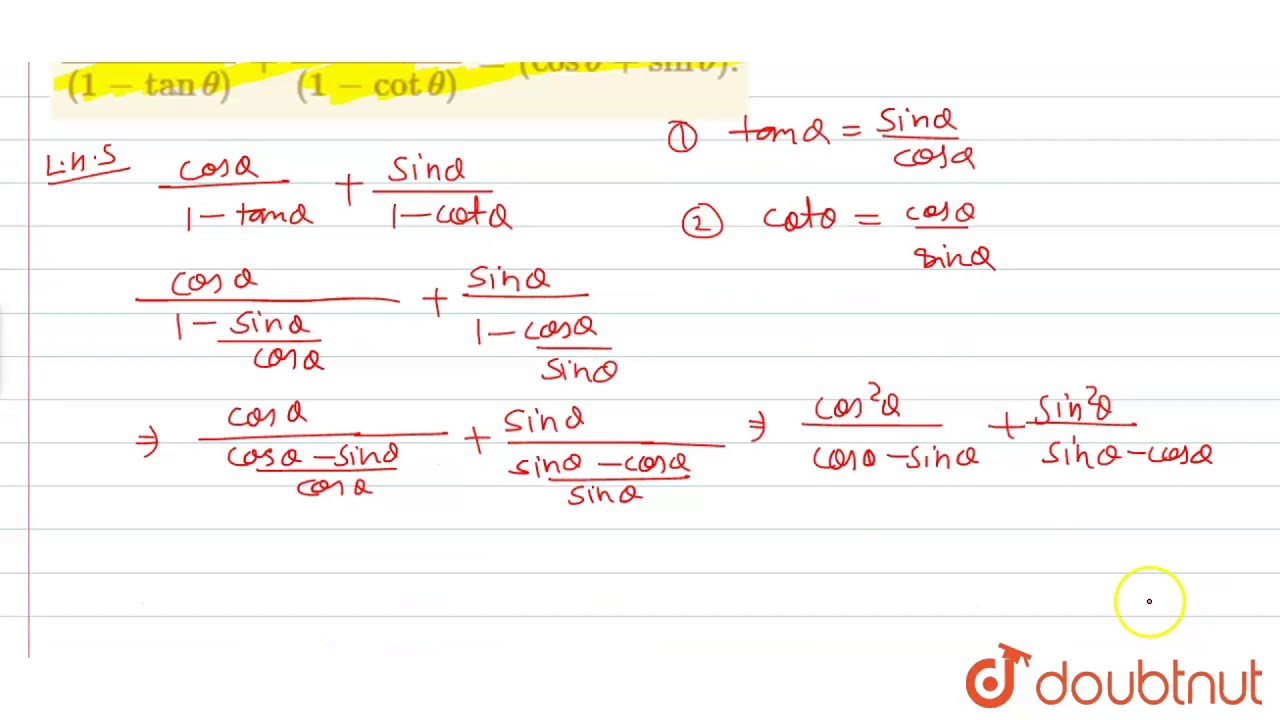 (1 − tan θ) + (1 − cot θ) = (cos θ + sin θ).
L.H.S cosθ/1−tanθ + sinθ/1−cotθ
① tanθ = sinθ/cosθ
② cotθ = cosθ/sinθ
cosθ/1−sinθ/cosθ + sinθ/1−cosθ/sinθ
⇒ cosθ/cosθ−sinθ/cosθ + sinθ/sinθ−cosθ/sinθ ⇒ cos²θ/cosθ−sinθ + sin²θ/sinθ−cosθ
doubtnut